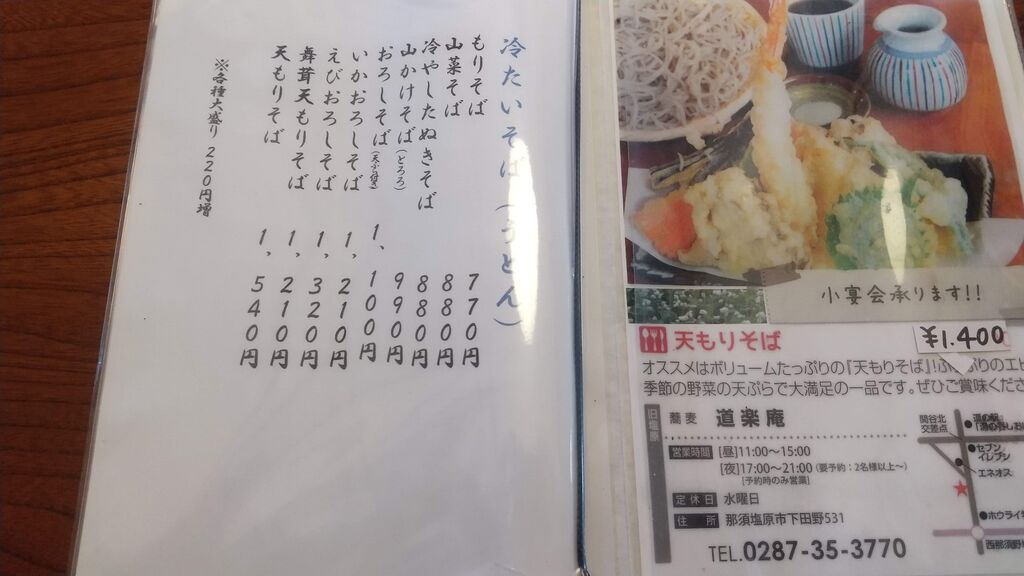 冷たいそば（うどん）
もりそば 770円
山菜そば 880円
冷やしたぬきそば 880円
山かけそば（とろろ） 990円
おろしそば（天ぷら付き） 1,100円
いかおろしそば 1,210円
えびおろしそば 1,320円
舞茸天もりそば 1,210円
天もりそば 1,540円
※各種大盛り 220円増
小宴会承ります!!
天もりそば
¥1.400
オススメはボリュームたっぷりの『天もりそば』!
季節の野菜の天ぷらで大満足の一品です。ぜひご賞味くださ
旧塩原
蕎麦 道楽庵
営業時間 [昼]11:00〜15:00
[夜]17:00〜21:00(要予約：2名様以上〜)
[予約時のみ営業]
定休日 水曜日
住所 那須塩原市下田野531
TEL.0287-35-3770
関谷北
交差点
セブン
イレブン
エネオス
ホウライ
西那須野